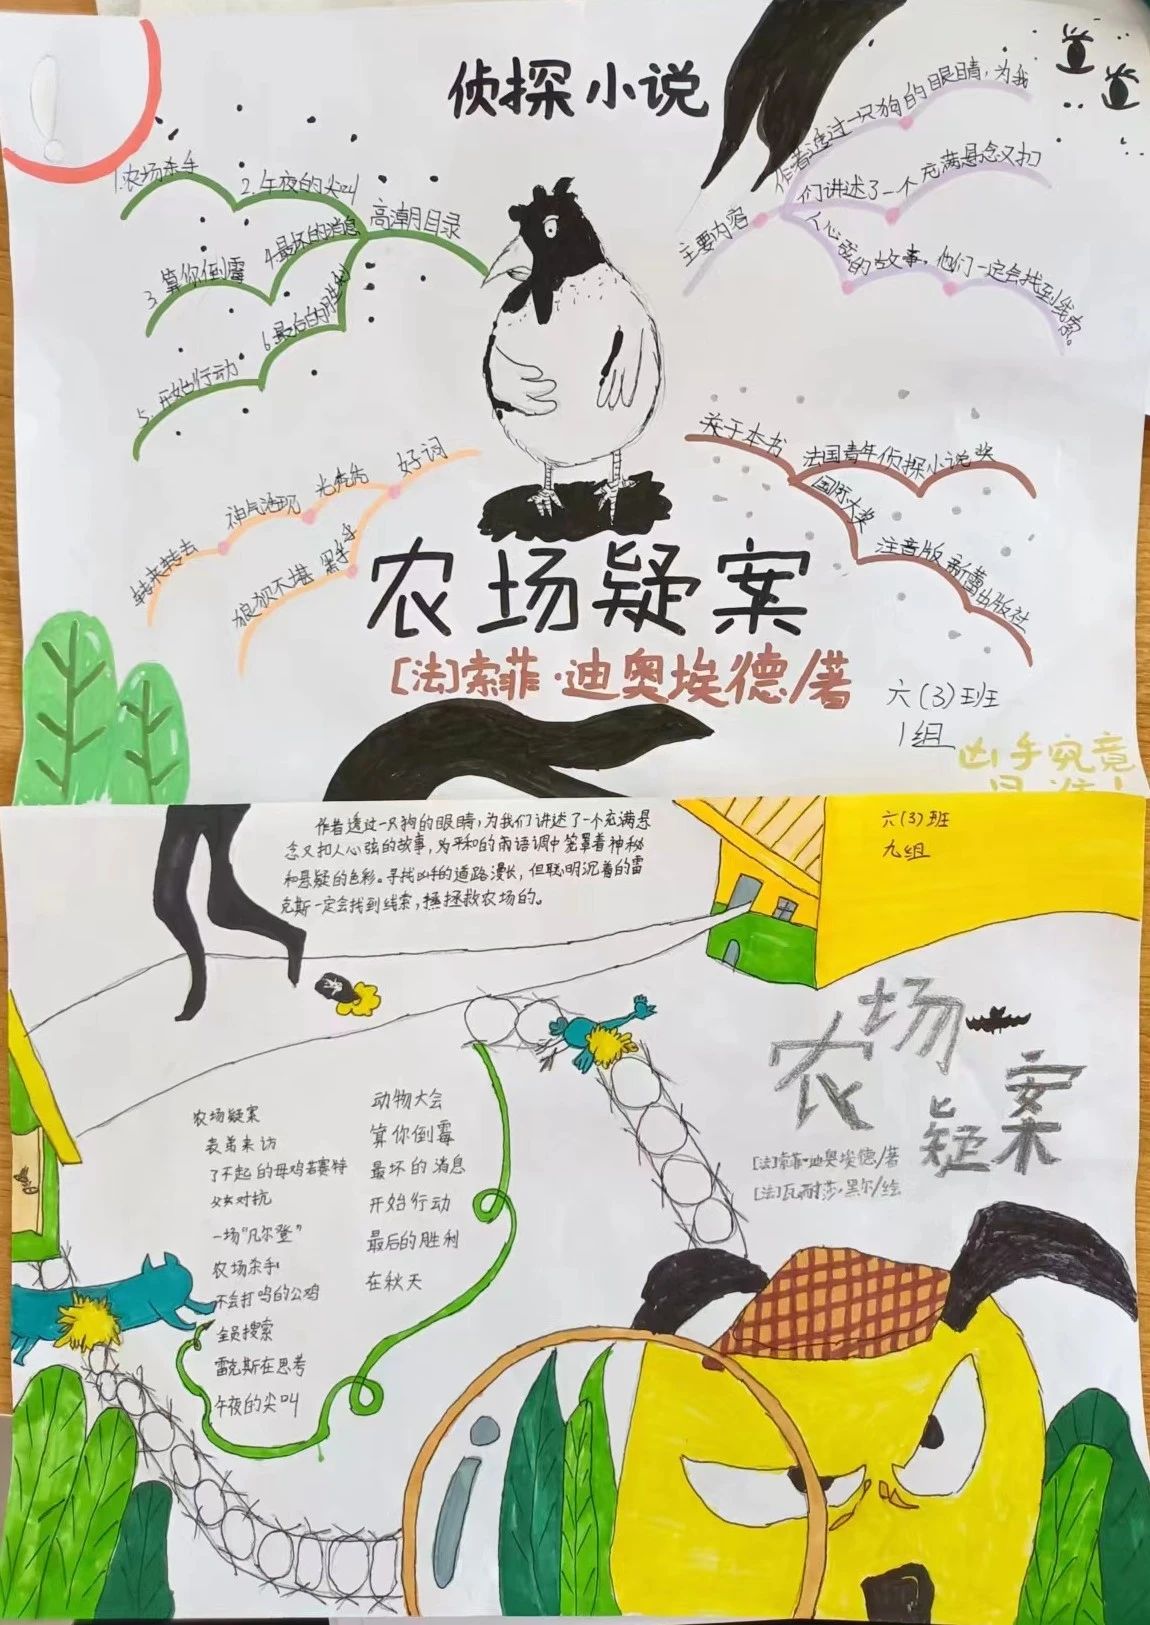 侦探小说
1.农场杀手
2.午夜的尖叫
高潮月目录
3.算你倒霉
4.最坏的消息
5.开始行动
6.最后的胜利
主要内容
作者透过一只狗的眼睛,为我
们讲述了一个充满悬念又扣
人心弦的故事,他们一定会找到线索。
好词
光秃秃
神气活现
转来转去
黑乎乎
狼狈不堪
关于本书
法国青年侦探小说奖
国际大奖
注音版 新蕾出版社
农场疑案
[法]索菲·迪奥埃德/著
六(3)班
1组
凶手究竟
是谁!
作者透过一只狗的眼睛,为我们讲述了一个充满悬
念又扣人心弦的故事,为平和的雨语调中笼罩着神秘
和悬疑的色彩。寻找凶手的道路漫长,但聪明沉着的雷
克斯一定会找到线索,拯救农场的。
六(3)班
九组
农场
疑案
[法]索菲·迪奥埃德/著
[法]瓦耐莎·黑尔/绘
农场疑案
表弟来访
了不起的母鸡若赛特
父女对抗
一场“凡尔登”
农场杀手
不会打鸣的公鸡
全员搜索
雷克斯在思考
午夜的尖叫
动物大会
算你倒霉
最坏的消息
开始行动
最后的胜利
在秋天